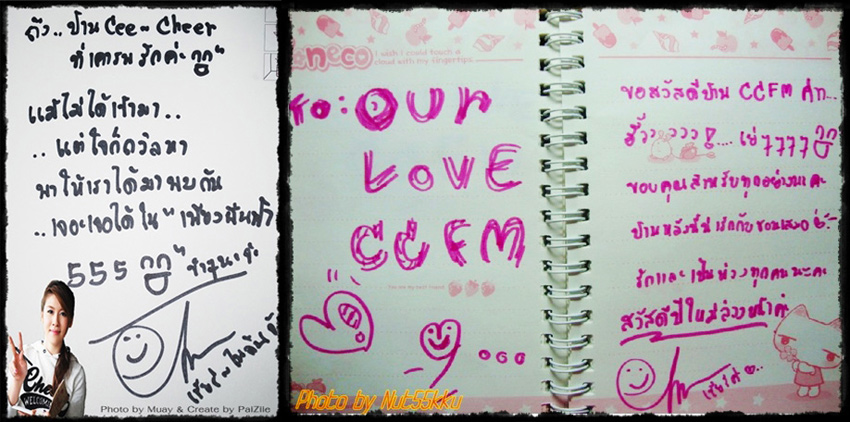 ถึง.. บ้าน Cee~Cheer
ที่เคารพรักค่ะ
แม้ไม่ได้เข้ามา..
..แต่ใจก็ถวิลหา
พาให้เราได้มาพบกัน
..เจอะเจอได้ใน "เพียงฝันฟ้า
555
Cheer
WELCOME
Photo by Muay & Create by PalZile
neco
I wish I could touch a
cloud with my fingertips.
to: OUR
LOVE
CCFM
Photo by Nut55kku
ขอสวัสดีบ้าน CCFM ค่ำ...
ฮิ้วว ววว! ... เย่ 7777
ขอบคุณสำหรับทุกอย่างนะคะ
บ้านหลังนี้น่ารักกับขวนเสมอ
รักและเป็นห่วงทุกคนนะคะ
สวัสดีปีใหม่ล่วงหน้าค่ะ